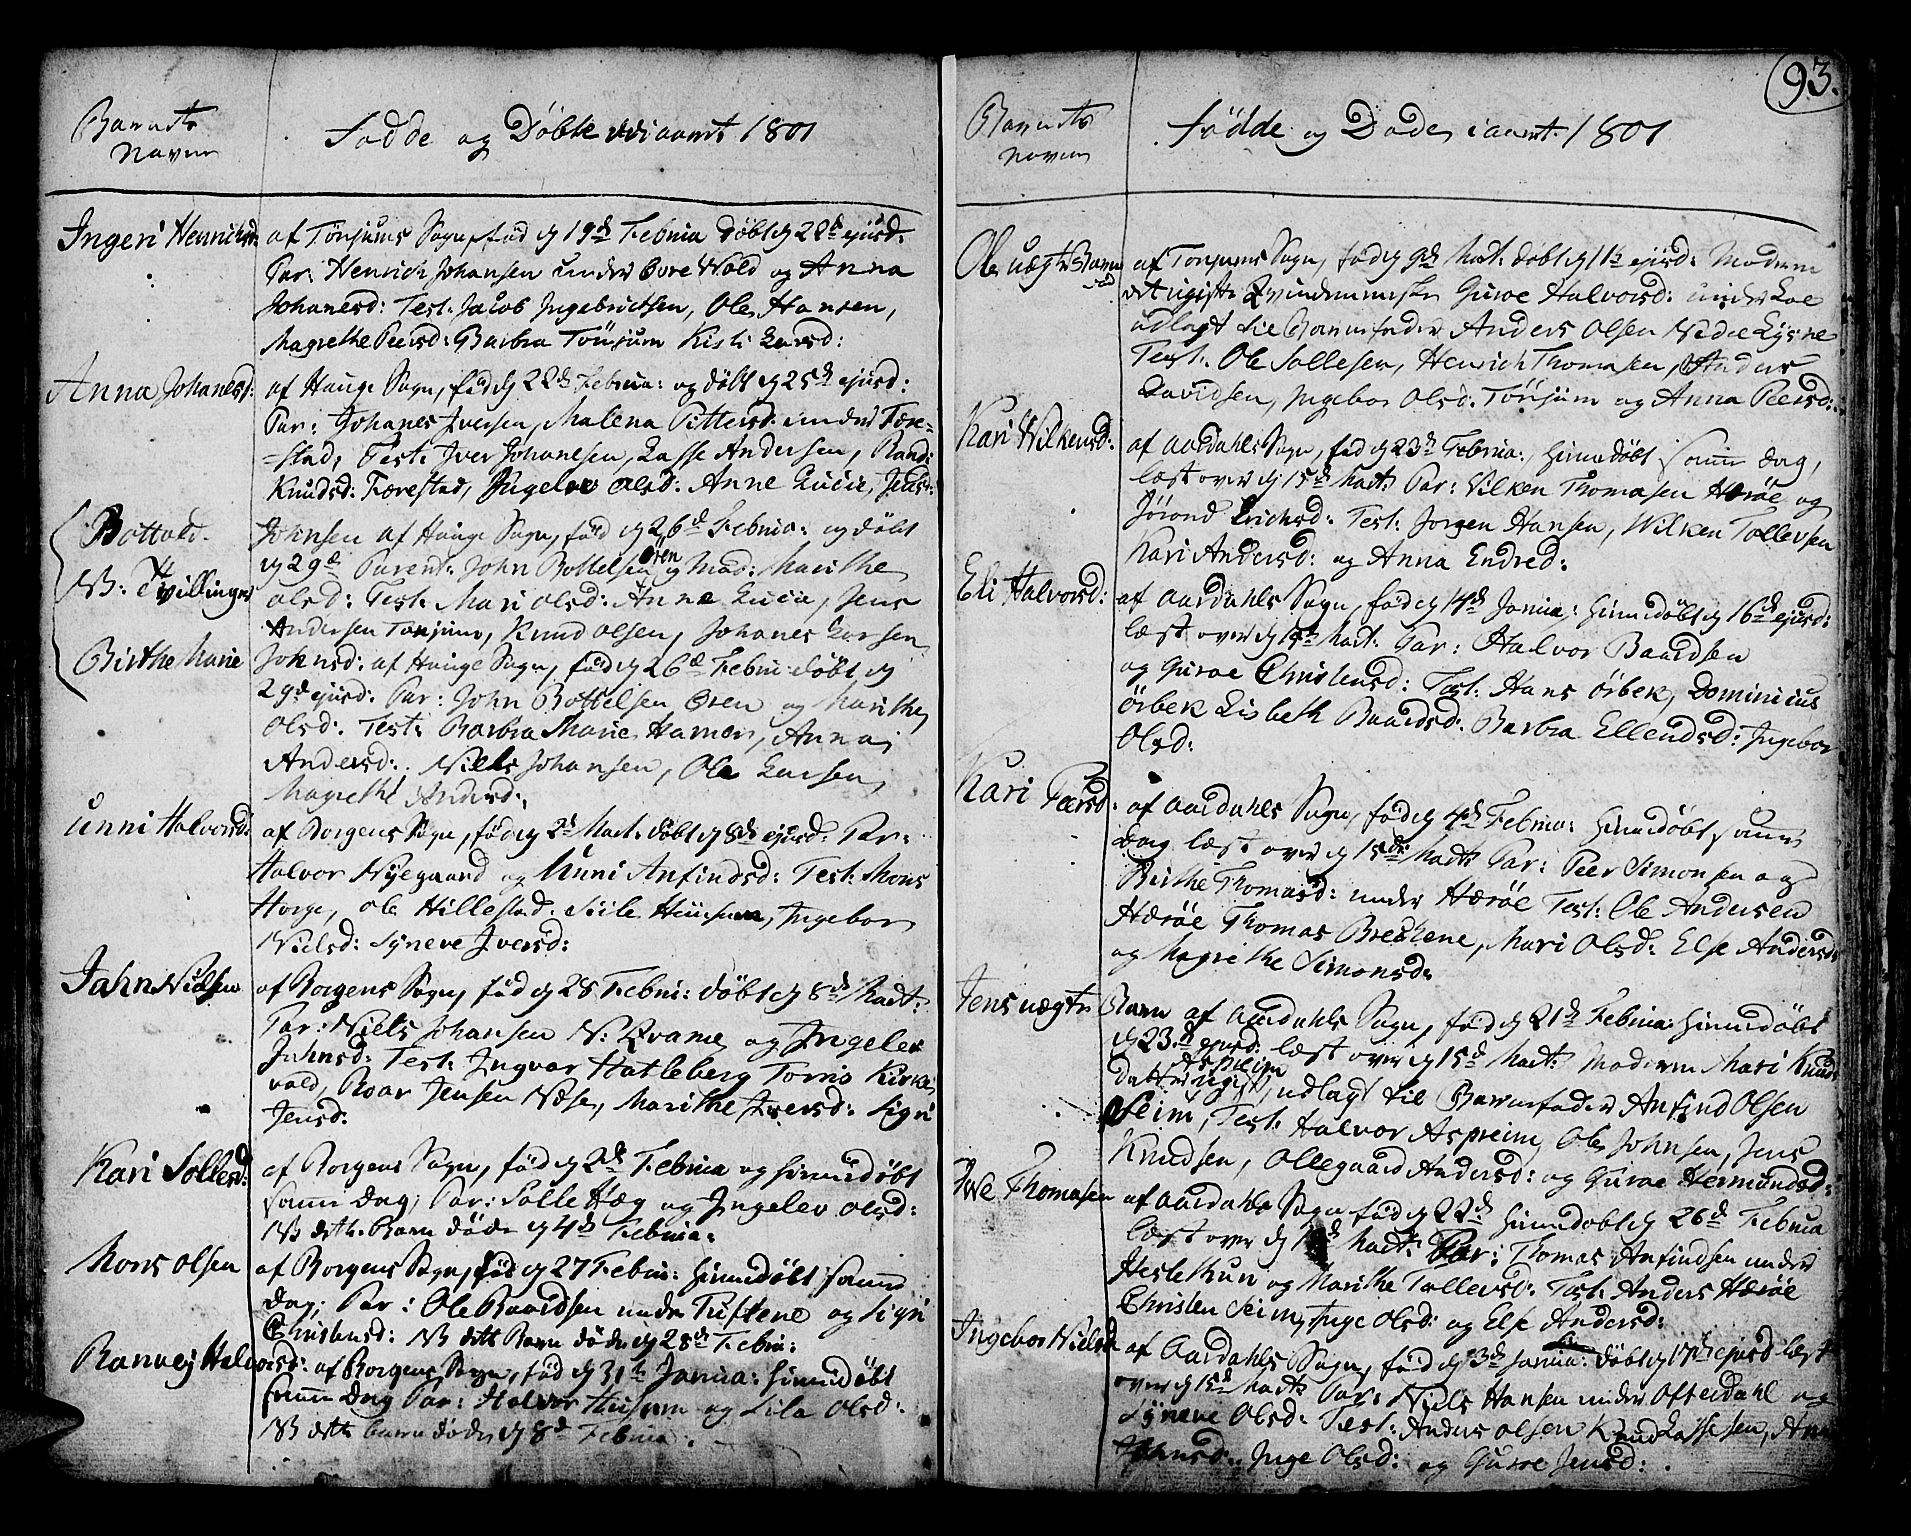 Barnets
Navn
Fødde og Døbte i aaret 1801
Ingeri Henrichsd: af Tönjums Sogn, föd d 19de Februa döbt d 22de ejusd:
Par: Henrich Johansen under Øvre Wold og Anna
Johanesd: Test: Jacob Ingebrictsen, Ole Hansen,
Magrethe Peersd: Barbra Tönjum Kisti Larsd:
Anna Johanesd: af Hauge Sogn, föd d 22de Februa: og döbt d 25de ejusd:
Par: Johanes Iversen, Malena Pittersd: under Fære-
-stad, Test: Iver Johanesen, Lasse Andersen, Rand:
Knudsd: Færestad, Ingelev Olsd: Anne Lucie, Jensd:
Bottold. Johnsen af Hauge Sogn, föd d 26de Februa: og döbt
d 29de Parent: John Bottelsen Øren og Mad: Marithe
NB: Tvillinger Olsd: Test: Mari Olsd: Anne Lucie, Jens
Andersen Tonjum, Knud Olsen, Johanes Larsen
Birthe Marie Johnsd: af Hauge Sogn, föd d 26de Febru döbt d
29de ejusd: Par: John Bottelsen Ören og Marithe
Olsd: Test: Barbra Marie Hamer, Anna
Andersd: Niels Johansen, Ole Larsen,
Magrethe Andersd:
Unni Halvorsd: af Borgens Sogn, föd d 2de Mart: döbt d 8de ejusd: Par:
Halvor Nyegaard og Unni Anfindsd: Test: Mons
Horge, Ole Hillestad, Siile Husum, Ingebor
Nielsd: Syneve Iversd:
Jahn Nielsen af Borgens Sogn, föd d 28 Febru: döbt d 8de Mart:
Par: Niels Johansen N: Qvame og Ingelev
Jahnsd: Test: Ingvar Hatleberg Torris Kirke
vold, Roar Jensen Næse, Marithe Iversd: Sigri
Jensd:
Kari Sollesd: af Borgens Sogn, föd d 2de Februa og hiemdöbt
samme Dag, Par: Solle Hæg og Ingelev Olsd:
NB dette Barn döde d 4de Februa:
Mons Olsen af Borgens Sogn, föd d 27 Febru: hiemdöbt samme
Dag; Par: Ole Baardsen under Tuftene og Sigri
Christensd: NB dette Barn döde d 28de Febru:
Ranvej Halvorsd: af Borgens Sogn, föd d 31te Janua: hiemdöbt
samme Dag Par: Halvor Husum og Sila Olsd:
NB dette barn döde d 8de Februa:
93.
Barnets
Navn
Födde og Döde i aaret 1801
Ole uægte Barn af Tonjums Sogn, föd d 9de Mart: döbt d 11te ejusd: Moderen
det ugifte Qvindemenniske Guroe Halvorsd: under Loe
udlagt til Barnefader Anders Olsen Nedre Lysne
Test: Ole Sollesen, Henrich Thomasen, Anders
Davidsen, Ingebor Olsd: Tönjum og Anna Peersd:
Kari Wilkensd: af Aardahls Sogn, föd d 23de Februa:, hiemdöbt samme Dag,
læst over d 15de Mart: Par: Vilken Thomasen Hæröe og
Jörond Erichsd: Test: Jorgen Hansen, Wilken Tollevsen
Kari Andersd: og Anna Endred:
Eli Halvorsd: af Aardahls Sogn, föd d 14de Janua; hiemdöbt d 16de ejusd:
læst over d 15de Mart: Par: Halvor Baardsen
og Guroe Christensd: Test: Hans Örbek, Dominicus
Örbek Lisbeth Baardsd: Barbra Ellendsd: Ingebor
Olsd:
Kari Pærsd: af Aardahls Sogn, föd d 4de Februa: hiemdöbt samme
Dag læst over d 15de Mart: Par: Peer Simonsen og
Birthe Thomasd: under Hæröe Test: Ole Andersen
Hæröe Thomas Brechene, Mari Olsd: Else Andersd:
og Magrethe Simonsd:
Jens uægte Barn af Aardahls Sogn, föd d 21de Februa: hiemdöbt
d 23de ejusd: læst over d 15de Mart: Moderen Mari Knuds
datter ugift Aspreim, udlagt til Barnefader Anfind Olsen
Seim, Test: Halvor Aspreim, Ole Johnsen, Jens
Knudsen, Ollegaard Andersd: og Guroe Hermundsd:
Thomasen af Aardahls Sogn föd d 22de hiemdöbt d 26de Februa
læst over d Mart: Par: Thomas Anfindsen under
Hestetun og Marithe Tollevsd: Test: Anders Hæröe
Christen Seim, Inge Olsd: og Else Andersd:
Ingebor Nielsd: af Aardahls Sogn, föd d 3de Janua: döbt d 17de ejusd læst
over d 15de Mart: Par: Niels Hansen under Ofterdahl og
Synneve Olsd: Test: Anders Olsen Knud Lassesen, Anne
Jahnsd: Inge Olsd: og Guroe Jensd: